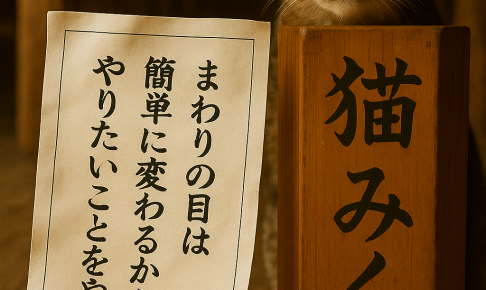 まわりの目は
簡単に変わるか
やりたいことを
猫み